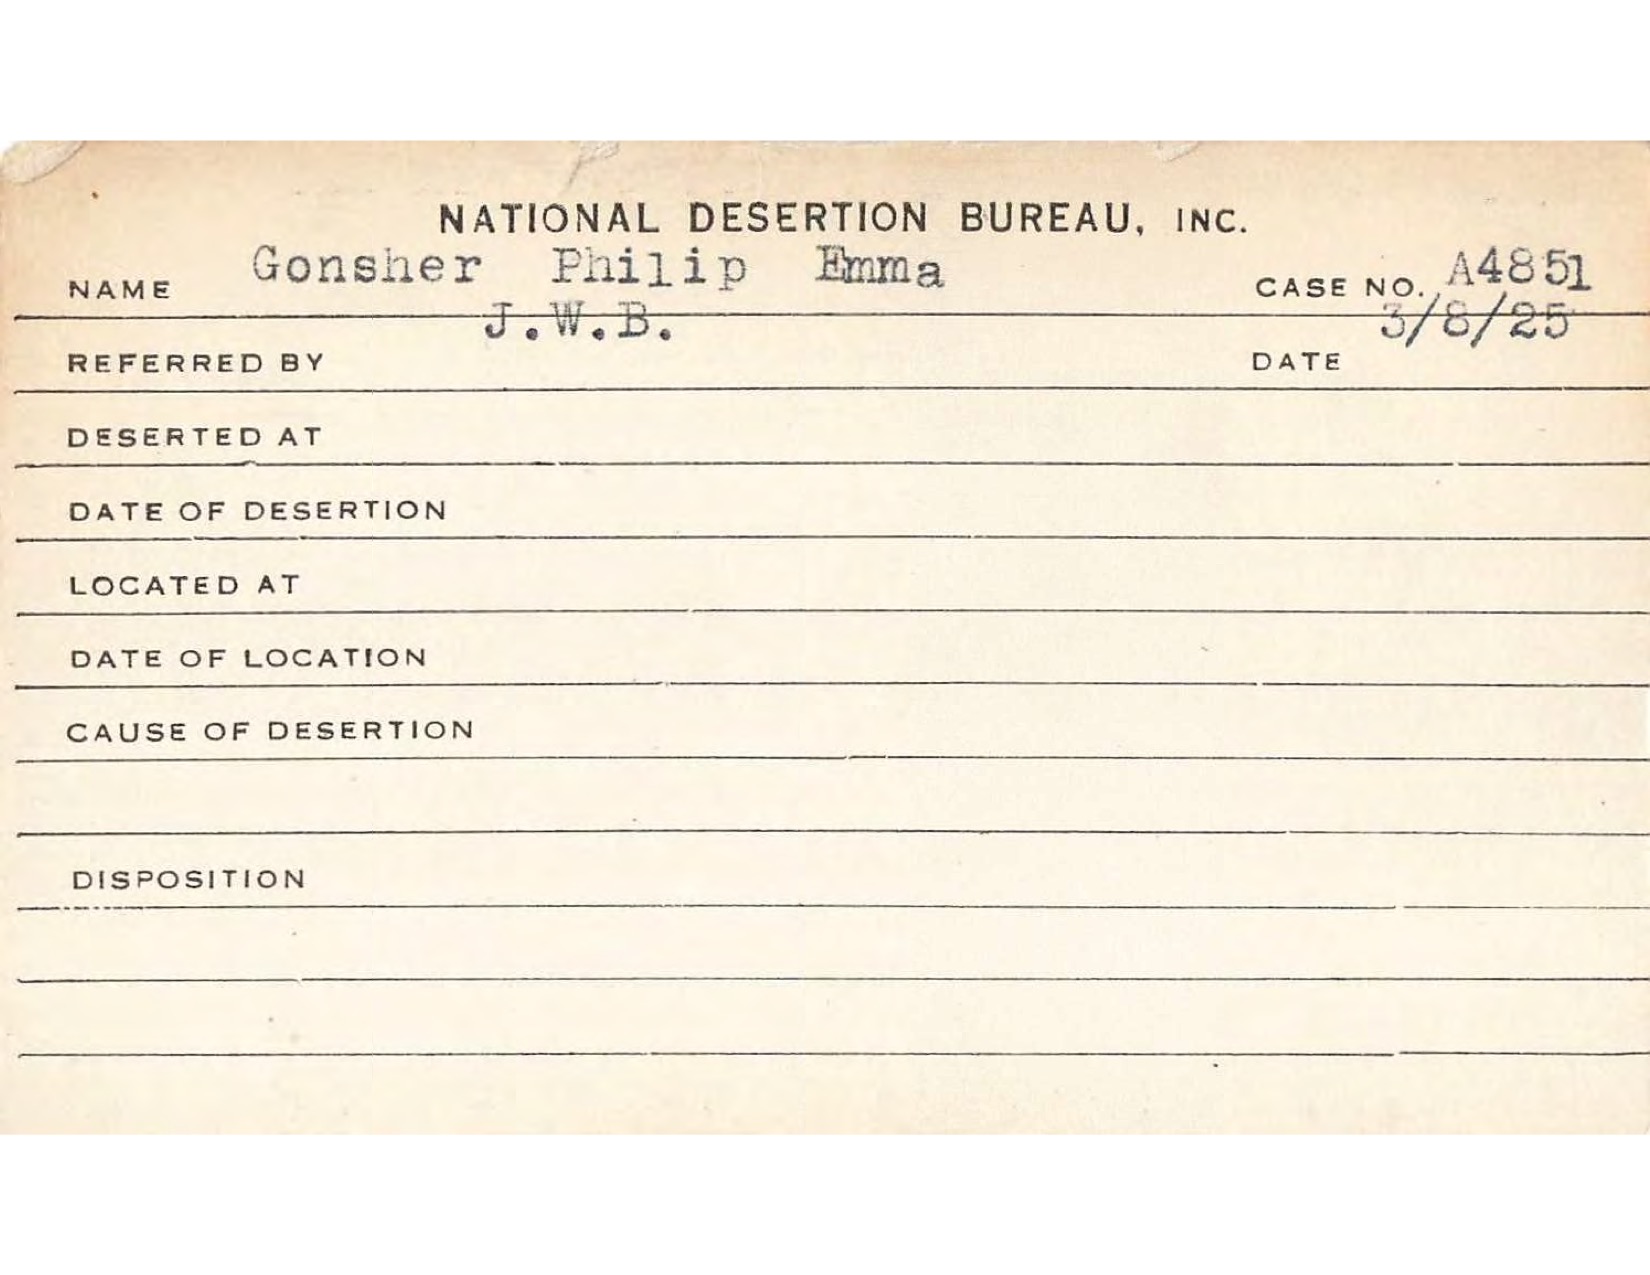 NATIONAL DESERTION BUREAU, INC.
NAME Gonsher Philip Emma CASE NO. A4851
REFERRED BY J.W.B. DATE 3/8/25
DESERTED AT
DATE OF DESERTION
LOCATED AT
DATE OF LOCATION
CAUSE OF DESERTION
DISPOSITION